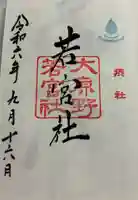 摂社
若宮社
大原野
若宮社
令和六年 九月 十六月